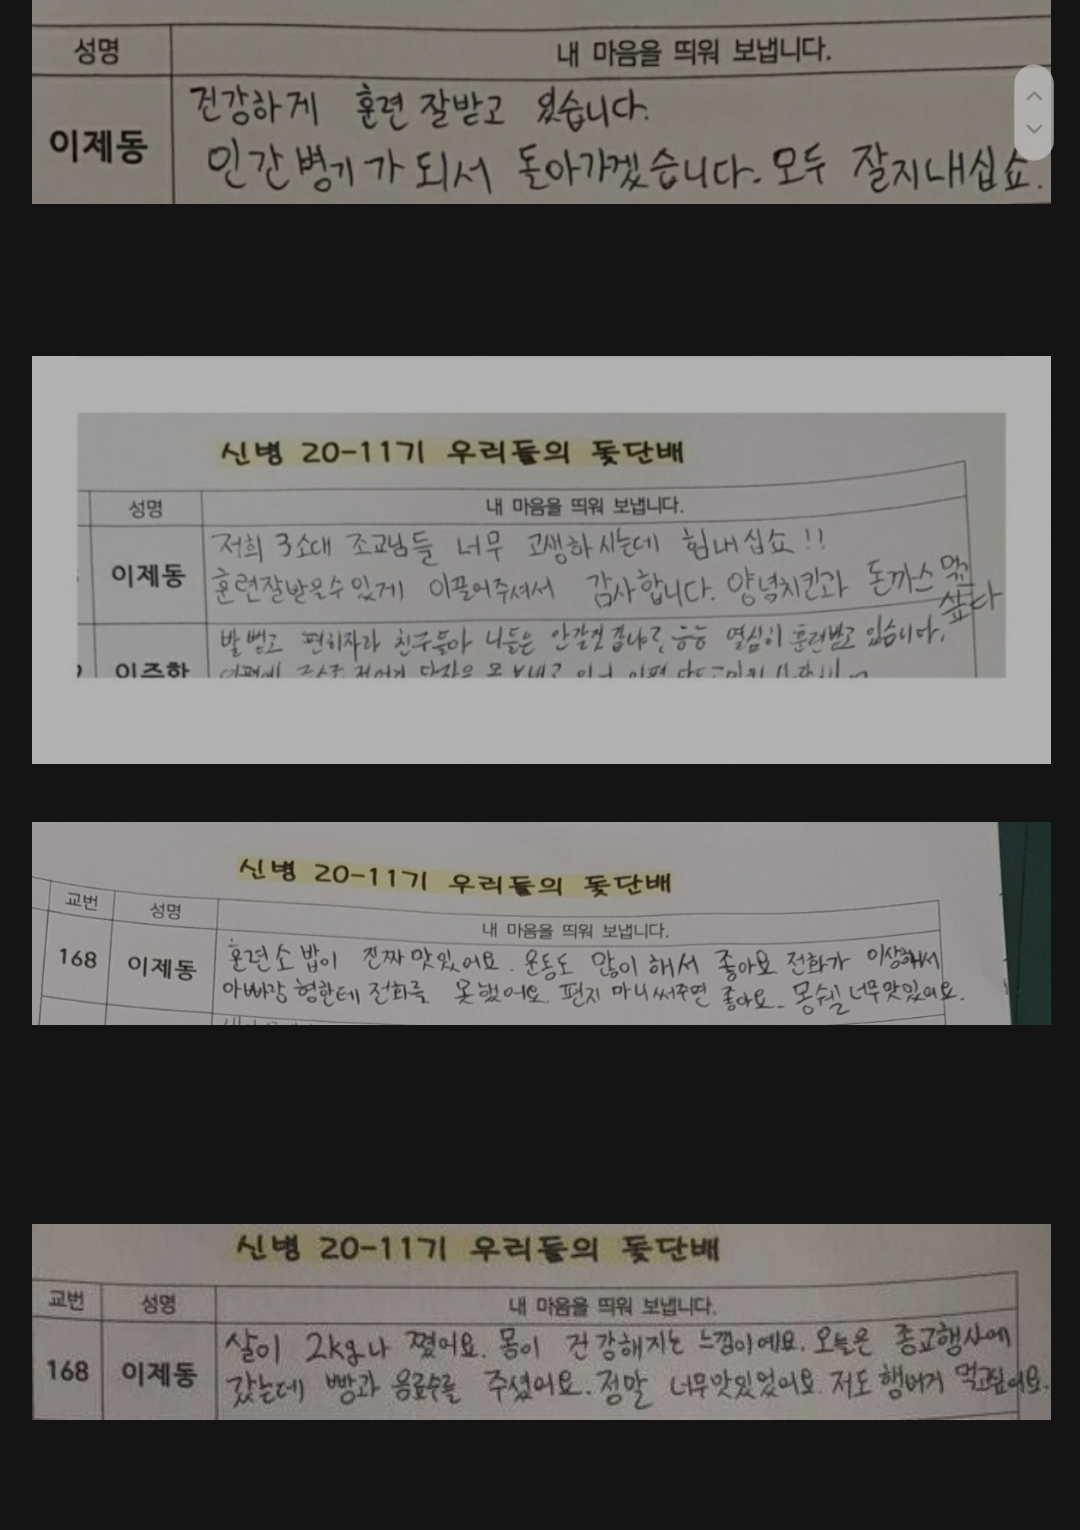 성명 내 마음을 띄워 보냅니다.
이제동 건강하게 훈련 잘받고 있습니다.
인간병기가 되서 돌아가겠습니다. 모두 잘지내십쇼.
신병 20-11기 우리들의 돛단배
성명 내 마음을 띄워 보냅니다.
이제동 저희 3소대 조교님들 너무 고생하시는데 힘내십쇼!!
훈련잘받을수있게 이끌어주셔서 감사합니다. 양념치킨과 돈까스 먹고
싶다
발 뻗고 편히자라 친구들아 너들은 안갈것 같냐? 능능 열심히 훈련받고 있습니다.
신병 20-11기 우리들의 돛단배
교번 성명 내 마음을 띄워 보냅니다.
168 이제동 훈련소 밥이 진짜 맛있어요. 운동도 많이 해서 좋아요 전화가 이상해서
아빠랑 형한테 전화를 못했어요. 편지 마니써주면 좋아요. 몽쉘 너무맛있어요.
신병 20-11기 우리들의 돛단배
교번 성명 내 마음을 띄워 보냅니다.
168 이제동 살이 2kg나 쪘어요. 몸이 건강해지는 느낌이에요. 오늘은 종교행사에
갔는데 빵과 음료수를 주셨어요. 정말 너무맛있었어요. 저도 햄버거 먹고싶어요.